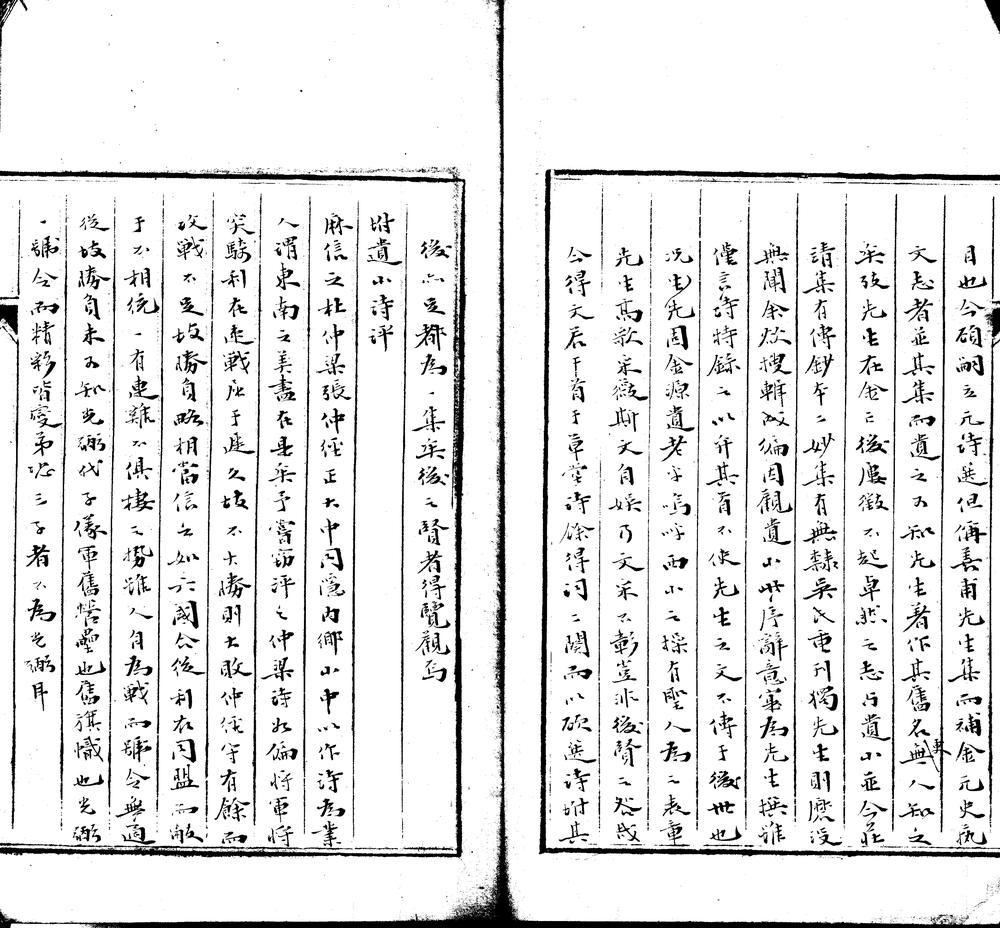 目也今碩嗣立元詩選但稱善甫先生集而補金元史藝
文志者並其集而遺之不知先生著作其舊名無人知之
矣攷先生在金亡後屢徵不起卓然之志與遺山並今莊
請集有傳鈔本二妙集有無隸吳氏重刊獨先生則麽沒
無聞余欲搜輯成編因觀遺山此序辭意寔為先生撰雖
僅言詩特錄之以弁其首不使先生之文不傳于後世也
況先生固金源遺老乎嗚呼西山之操有聖人為之表章
先生高歌采薇斯文自娛乃文采不彰豈非後賢之咎哉
今得文若干首于草堂詩餘得詞二闋而以欣選詩附其
後亦足都為一集矣後之賢者得覽觀焉
附遺山詩評
麻信之杜仲梁張仲經正大中同隱內鄉山中以作詩為業
人謂東南之美盡在是矣予嘗竊評之仲梁詩如偏將軍將
突騎利在速戰屈于遲久故不大勝則大敗仲經守有餘而
攻戰不足故勝負略相當信之如六國合從利在同盟而敝
于不相統一有連雞不俱棲之勢雖人自為戰而號令無適
從故勝負未可知光弼代子儀軍舊營壘也舊旗幟也光弼
一號令而精彩皆變第恐三子者不為光弼耳